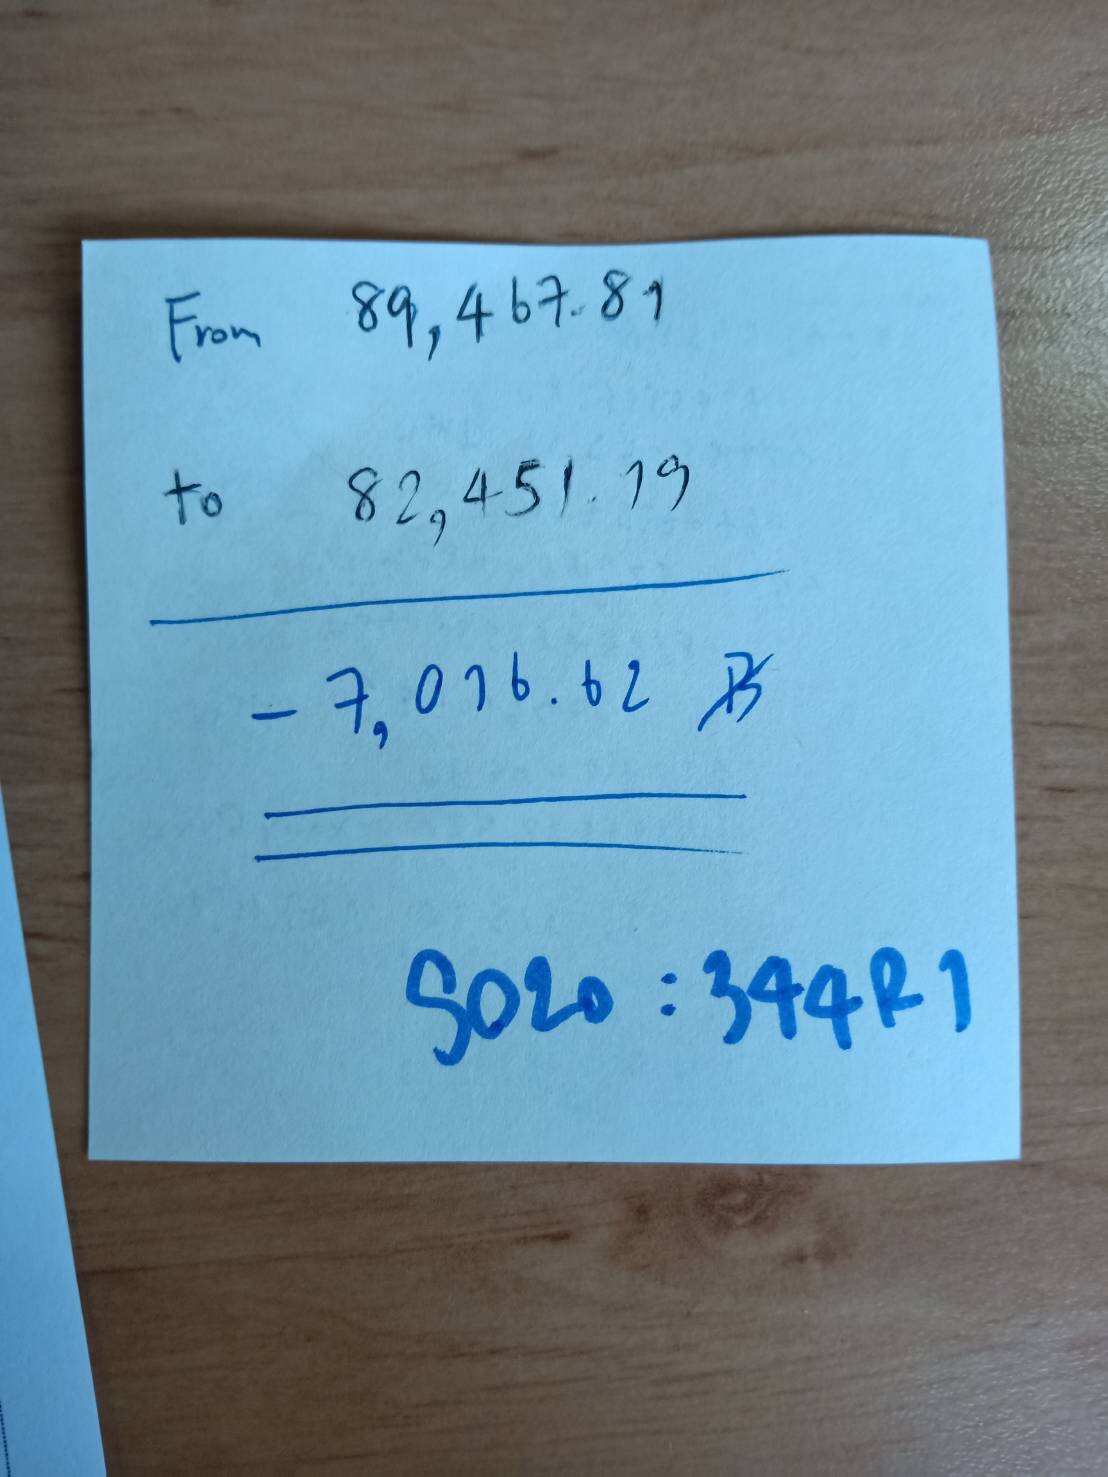 From 89,467.81
to 82,451.19
- 7,016.62 ฿
SO20 : 344R1